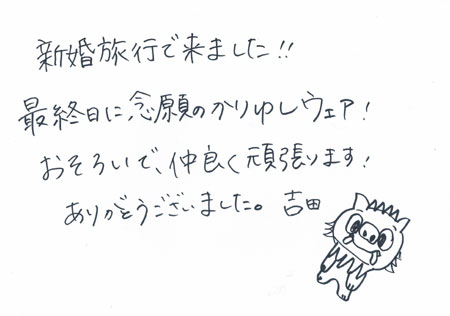 新婚旅行で来ました!!
最終日に、念願のかりゆしウェア!
おそろいで、仲良く頑張ります!
ありがとうございました。吉田